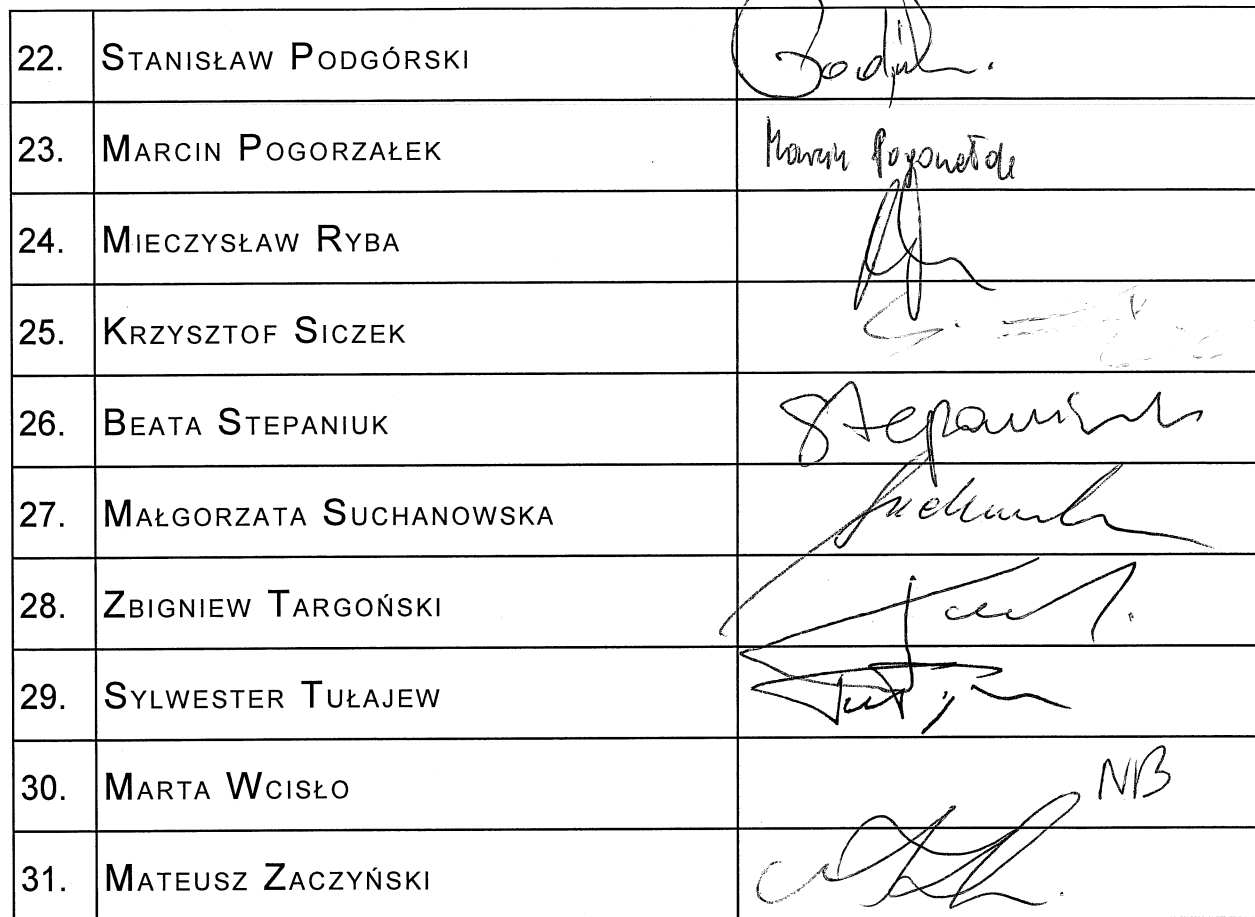 22. STANISŁAW PODGÓRSKI
23. MARCIN POGORZAŁEK Marcin Pogorzałek
24. MIECZYSŁAW RYBA
25. KRZYSZTOF SICZEK
26. BEATA STEPANIUK Stepaniuk
27. MAŁGORZATA SUCHANOWSKA
28. ZBIGNIEW TARGOŃSKI
29. SYLWESTER TUŁAJEW
30. MARTA WCISŁO NB
31. MATEUSZ ZACZYŃSKI